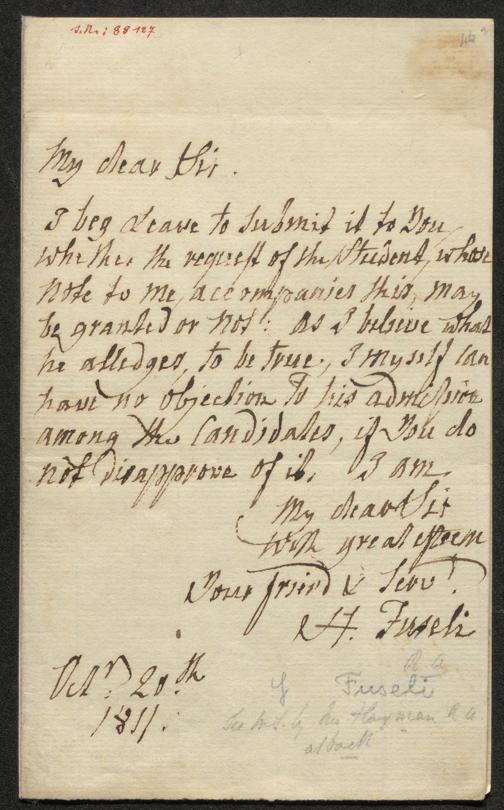 My dear Sir.
I beg Leave to submit it to You
whether the request of the Student, whose
Note to me, accompanies this, may
be granted or Not: as I believe what
he alledges, to be true, I myself can
have no objection to his admission
among the Candidates, if You do
not disapprove of it. I am
My dear Sir
With great esteem
Your friend & Servt.
H. Fuseli
Octr. 20th
1811.
R A
Fuseli
R A